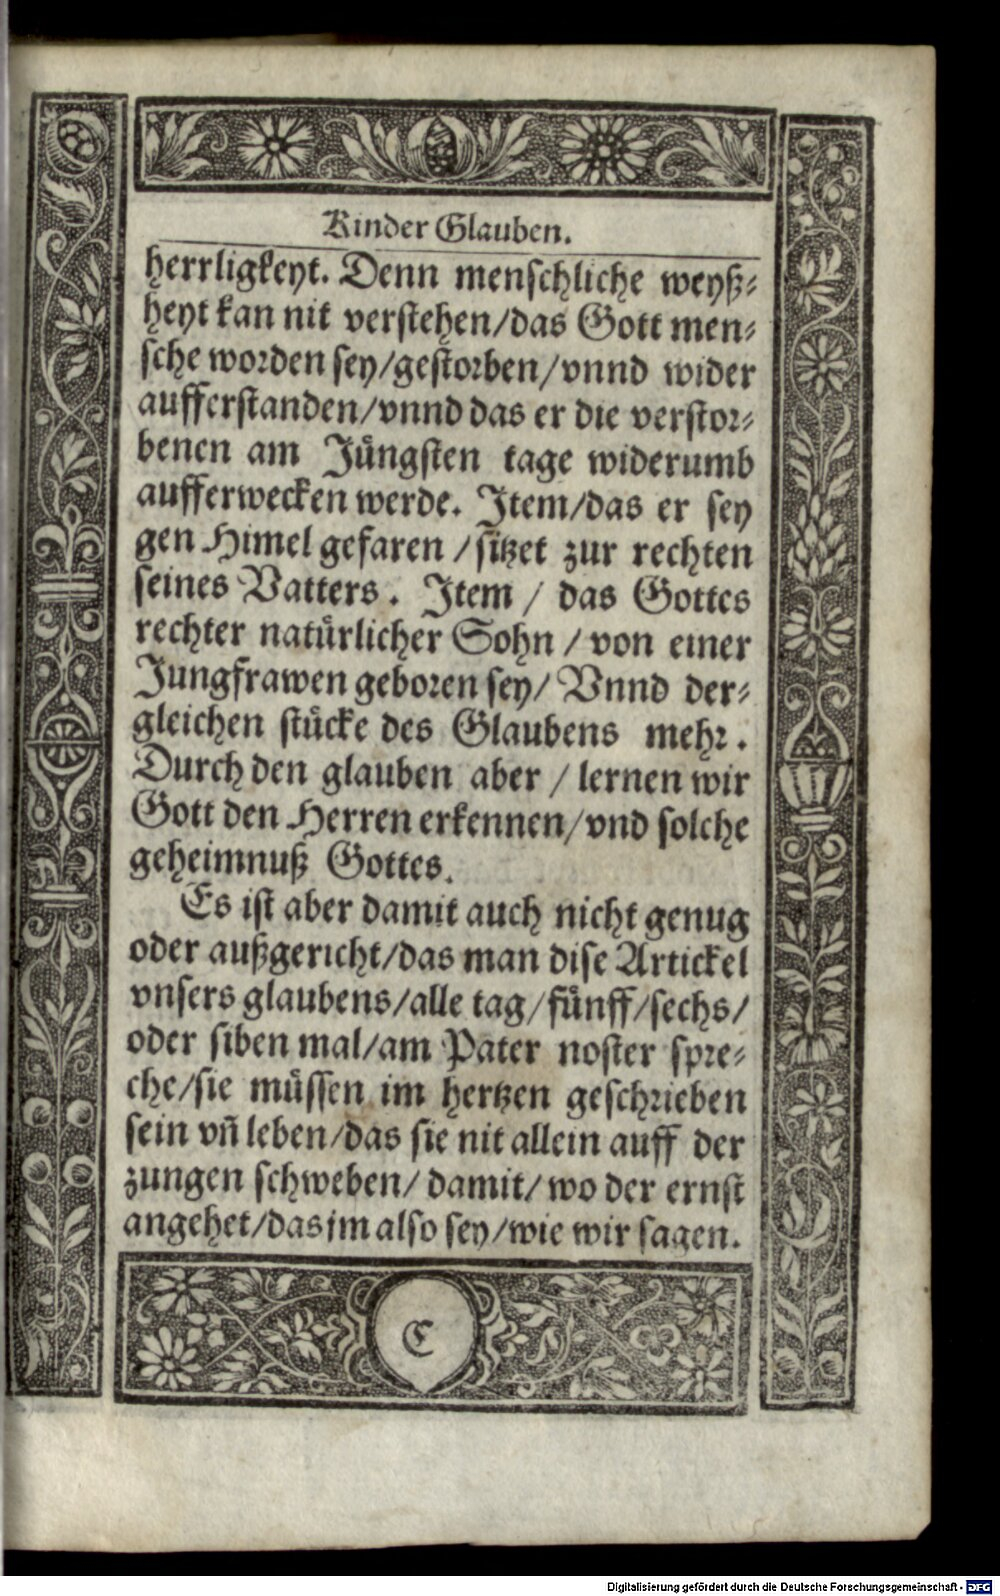 Kinder Glauben.
herrligkeyt. Denn menschliche weyß⸗
heyt kan nit verstehen/das Gott men⸗
sche worden sey/gestorben/vnnd wider
aufferstanden/vnnd das er die verstor⸗
benen am Jüngsten tage widerumb
aufferwecken werde. Jtem/das er sey
gen Himel gefaren /sitzet zur rechten
seines Vatters. Jtem / das Gottes
rechter natürlicher Sohn / von einer
Jungfrawen geboren sey/ Vnnd der⸗
gleichen stücke des Glaubens mehr.
Durch den glauben aber / lernen wir
Gott den Herren erkennen/vnd solche
geheimnuß Gottes.
Es ist aber damit auch nicht genug
oder außgericht/das man dise Artickel
vnsers glaubens/alle tag/fünff/sechs/
oder siben mal/am Pater noster spre⸗
che/sie müssen im hertzen geschrieben
sein vñ leben/das sie nit allein auff der
zungen schweben/ damit/ wo der ernst
angehet/das jm also sey/wie wir sagen.
C
Digitalisierung gefördert durch die Deutsche Forschungsgemeinschaft - DFG